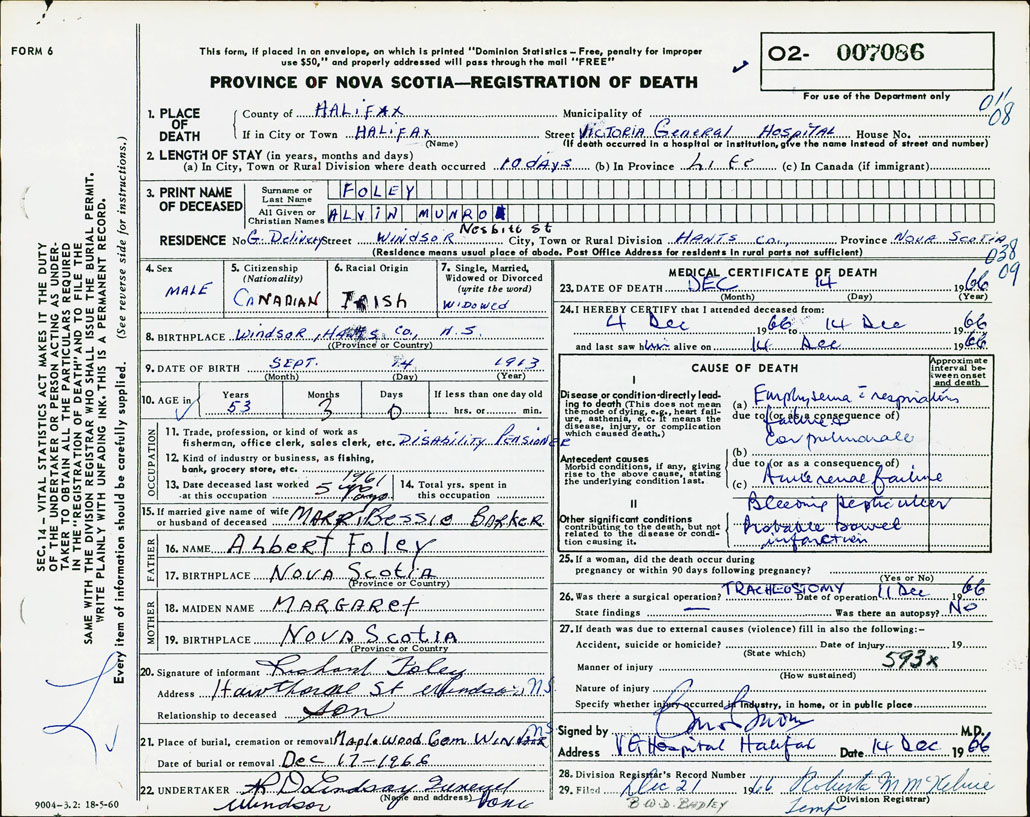 FORM 6
This form, if placed in an envelope, on which is printed "Dominion Statistics – Free, penalty for improper
use $50," and properly addressed will pass through the mail "FREE"
PROVINCE OF NOVA SCOTIA—REGISTRATION OF DEATH
02- 007086
For use of the Department only
011
08
1. PLACE OF DEATH
County of HALIFAX Municipality of
If in City or Town HALIFAX Street VICTORIA General HOSPITAL House No.
(Name) (If death occurred in a hospital or institution, give the name instead of street and number)
2. LENGTH OF STAY (in years, months and days)
(a) In City, Town or Rural Division where death occurred 10 days (b) In Province LIFE (c) In Canada (if immigrant)
3. PRINT NAME OF DECEASED
Surname or Last Name FOLEY
All Given or Christian Names ALVIN MUNRO
Nesbitt St
RESIDENCE No G. Delivery Street WINDSOR City, Town or Rural Division HANTS CO., Province NOVA SCOTIA
(Residence means usual place of abode. Post Office Address for residents in rural parts not sufficient.)
038
09
4. Sex MALE
5. Citizenship (Nationality) CANADIAN
6. Racial Origin IRISH
7. Single, Married, Widowed or Divorced (write the word) WIDOWED
8. BIRTHPLACE WINDSOR, HANTS CO, N.S.
(Province or Country)
9. DATE OF BIRTH SEPT. 14 1913
(Month) (Day) (Year)
10. AGE in Years 53 Months 3 Days 0 If less than one day old
hrs. or min.
OCCUPATION
11. Trade, profession, or kind of work as
fisherman, office clerk, sales clerk, etc. DISABILITY PENSIONER
12. Kind of industry or business, as fishing,
bank, grocery store, etc.
13. Date deceased last worked at this occupation 1961 5 yrs
14. Total yrs. spent in this occupation
15. If married give name of wife or husband of deceased MARY BESSIE BARKER
FATHER
16. NAME Albert Foley
17. BIRTHPLACE NOVA SCOTIA
(Province or Country)
MOTHER
18. MAIDEN NAME MARGARET
19. BIRTHPLACE NOVA SCOTIA
(Province or Country)
20. Signature of informant Richard Foley
Address Hawthorne St Windsor, N.S.
Relationship to deceased Son
21. Place of burial, cremation or removal Maplewood Cem WINDSOR N.S.
Date of burial or removal Dec 17-1966
22. UNDERTAKER R D Lindsay Funeral Home
(Name and address)
Windsor
9004-3.2: 18-5-60
MEDICAL CERTIFICATE OF DEATH
23. DATE OF DEATH DEC 14 1966
(Month) (Day) (Year)
24. I HEREBY CERTIFY that I attended deceased from:
4 Dec 1966 to 14 Dec 1966
and last saw him alive on 14 Dec 1966
CAUSE OF DEATH
Approximate interval between onset and death
I
Disease or condition directly leading to death (This does not mean the mode of dying, e.g., heart failure, asthenia, etc. It means the disease, injury, or complication which caused death.)
(a) Emphysema c respiratory failure
due to (or as a consequence of)
Cor pulmonale
(b)
Antecedent causes
Morbid conditions, if any, giving rise to the above cause, stating the underlying condition last.
due to (or as a consequence of)
(c) Acute renal failure
II
Other significant conditions
contributing to the death, but not related to the disease or condition causing it.
Bleeding peptic ulcer
Probable bowel
infarction
25. If a woman, did the death occur during
pregnancy or within 90 days following pregnancy?
(Yes or No)
26. Was there a surgical operation? TRACHEOSTOMY Date of operation 11 Dec 1966
State findings — Was there an autopsy? NO
27. If death was due to external causes (violence) fill in also the following:–
Accident, suicide or homicide? Date of injury 19
(State which)
593x
Manner of injury
(How sustained)
Nature of injury
Specify whether injury occurred in industry, in home, or in public place
Signed by M.D.
Address VG Hospital Halifax Date 14 Dec 1966
28. Division Registrar's Record Number
29. Filed Dec 21 1966 Roberta M McKelvie
(Division Registrar)
B W.D. BADLEY Temp
SEC. 14 – VITAL STATISTICS ACT MAKES IT THE DUTY
OF THE UNDERTAKER OR PERSON ACTING AS UNDER-
TAKER TO OBTAIN ALL THE PARTICULARS REQUIRED
IN THE "REGISTRATION OF DEATH" AND TO FILE THE
SAME WITH THE DIVISION REGISTRAR WHO SHALL ISSUE THE BURIAL PERMIT.
WRITE PLAINLY WITH UNFADING INK. THIS IS A PERMANENT RECORD.
Every item of information should be carefully supplied. (See reverse side for instructions.)